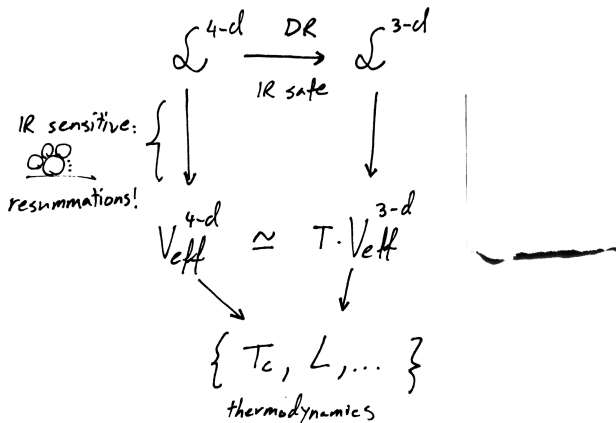 ℒ⁴⁻ᵈ DR ℒ³⁻ᵈ
IR safe
IR sensitive:
resummations!
V_eff⁴⁻ᵈ ≃ T · V_eff³⁻ᵈ
{ T_c , L , ... }
thermodynamics